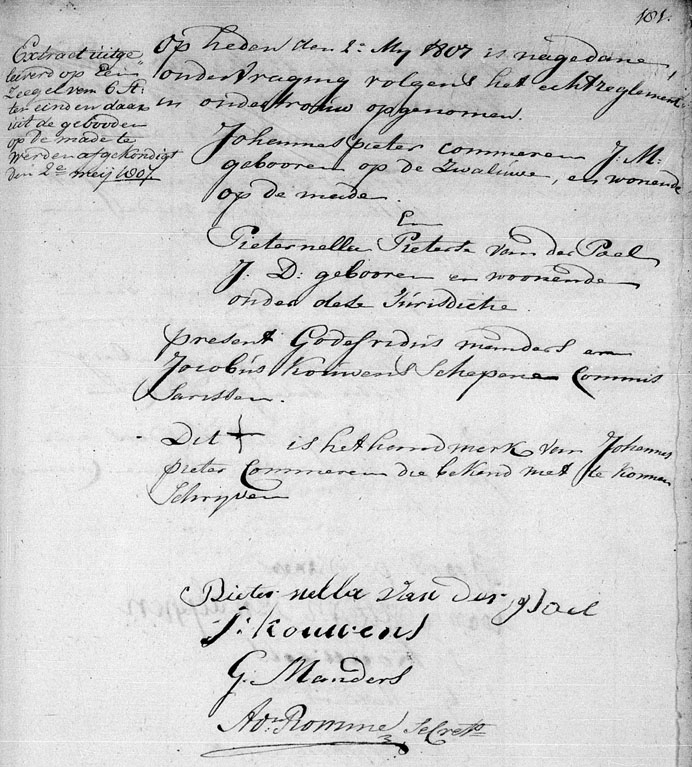 181.
Extract uitge„
leverd op Een
Zeegel van 6 St:
ten einden daar
uit de gebooden
op de made te
werden afgekondigt
den 2e meij 1807
Op heden den 2: My 1807 is nagedane
ondervraging volgens het echtreglement
in ondertrouw opgenomen.
Johannes pieter commeren J. M:
gebooren op de Zwaluwe, en wonende
op de made.
En
Pieternella Pieterse van der Pael
J. D: gebooren en woonende
onder dese Jurisdictie.
present Godefridus manders en
Jacobus Kouwens Schepene Commis
sarissen.
Dit + is het handmerk van Johannes
pieter Commeren die bekend niet te konnen
Schryven
Pieter nella Van der Pael
J: Kouwens
G. Manders
Adn Romme Secrets